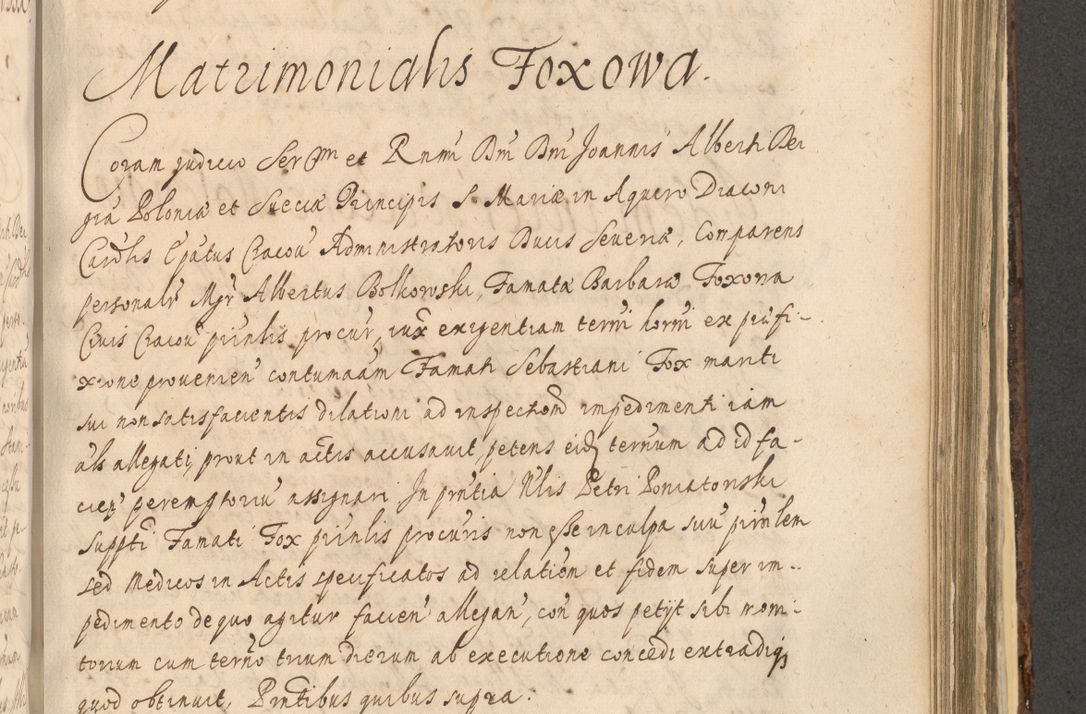 Matrimonialis Foxowa.
Coram judicio Sermi et Rnmi Dni Dni Joannis Alberti Dei
gra Poloniæ et Sueciæ Principis S. Mariæ in Aquero Diaconi
Cardlis Epatus Cracou Administratoris Ducis Severiæ, Comparens
personalr Mgr Albertus Bolkowski, Famatæ Barbaræ Foxowa
Civis Cracou prinlis procur, iux exigentiam termi horni ex præfi-
xione provenien contumaciam Famati Sebastiani Fox mariti
sui non satisfacientis dilationi ad inspectiom impedimenti iam
als allegati, prout in actis accusavit, petens eid terminum ad id fa-
cien peremptoriu assignari. In prntia Nlis Petri Poniatowski
suppti Famati Fox prinlis procuris non esse in culpa suu prinlem
sed Medicos in Actis specificatos ad relation et fidem super im-
pedimento de quo agitur facien allegan, con quos petijt sibi moni-
torium cum termo trium dierum ab executione concedi extradiq
quod obtinuit, Prntibus quibus supra.